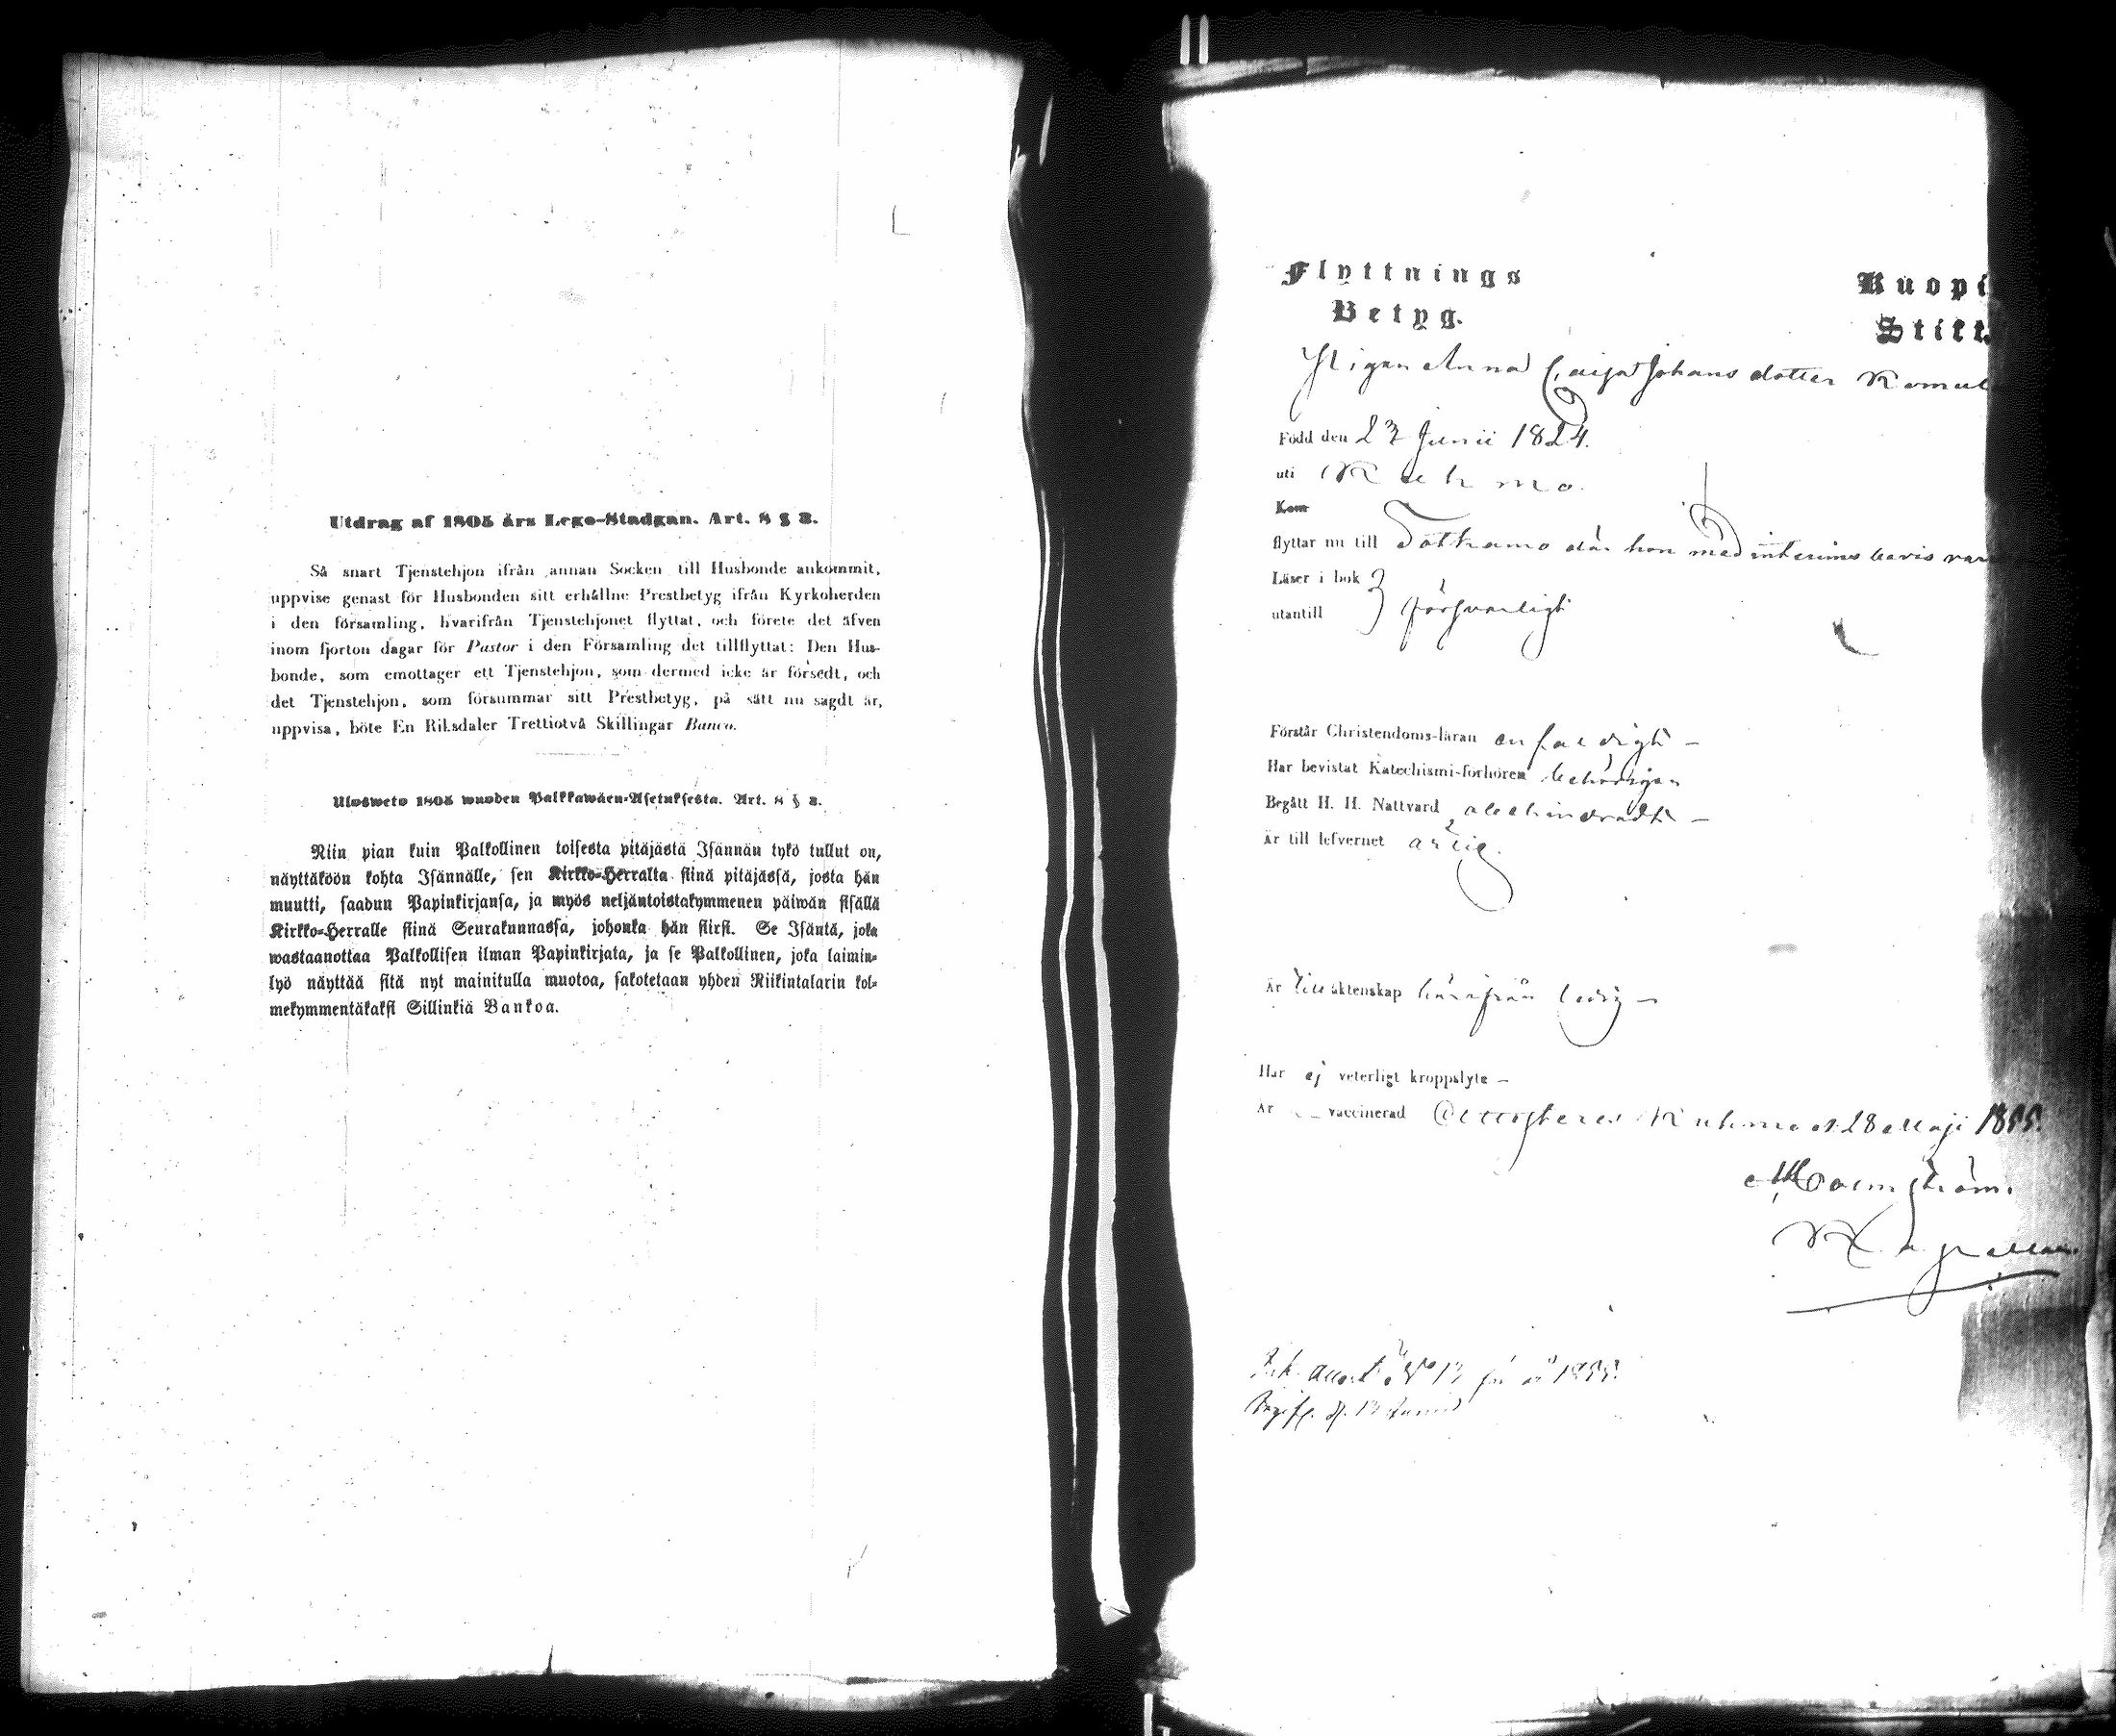 Utdrag af 1805 års Lego-Stadgan. Art. 8 § 3.
Så snart Tjenstehjon ifrån annan Socken till Husbonde ankommit,
uppvise genast för Husbonden sitt erhållne Prestbetyg ifrån Kyrkoherden
i den församling, hvarifrån Tjenstehjonet flyttat, och förete det äfven
inom fjorton dagar för Pastor i den Församling det tillflyttat: Den Hus-
bonde, som emottager ett Tjenstehjon, som dermed icke är försedt, och
det Tjenstehjon, som försummar sitt Prestbetyg, på sätt nu sagdt är,
uppvisa, böte En Riksdaler Trettiotvå Skillingar Banco.
Ulosweto 1805 wuoden Palkkawäen-Asetuksesta. Art. 8 § 3.
Niin pian kuin Palkollinen toisesta pitäjästä Isännän tykö tullut on,
näyttäköön kohta Isännälle, sen Kirkko-Herralta siinä pitäjässä, josta hän
muutti, saadun Papinkirjansa, ja myös neljäntoistakymmenen päiwän sisällä
Kirkko-Herralle siinä Seurakunnassa, johonka hän siirsi. Se Isäntä, joka
wastaanottaa Palkollisen ilman Papinkirjata, ja se Palkollinen, joka laimin-
lyö näyttää sitä nyt mainitulla muotoa, sakotetaan yhden Riikintalarin kol-
mekymmentäkaksi Sillinkiä Bankoa.
Flyttnings
Betyg.
Kuopi
Stift.
Pigan Anna Caisa Johans dotter Komul
Född den 27 Junii 1824.
uti Kuhmo.
Kom
flyttar nu till Sotkamo där hon med interims bevis var
Läser i bok
utantill försvarligt
Förstår Christendoms-läran enfaldigt –
Har bevistat Katechismi-förhören behörigen
Begått H. H. Nattvard obehindradt –
Är till lefvernet ärlig.
Är till äktenskap härifrån ledig –
Har ej veterligt kroppslyte –
Är vaccinerad Attesterar Kuhmo d. 28 Maji 1855.
Malmström.
Kapellan.
N:o 13 för år 1855.